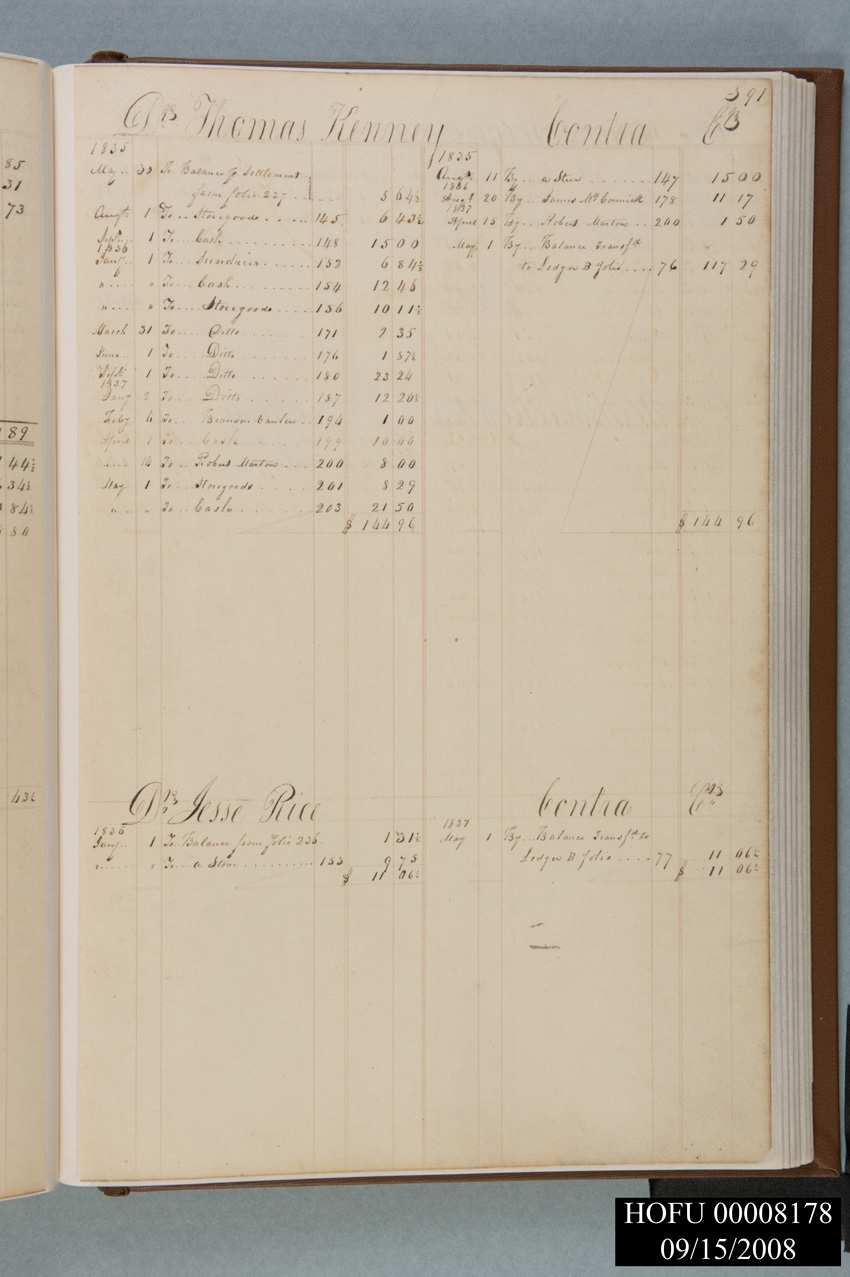 85
31
73
89
44½
34½
84½
80
43½
391
Dr Thomas Kenney Contra Cr
1835
May 30 To Balance p Settlement
from folio 227 5 64½
Augt 1 To Storegoods 145 6 43½
Sept 1 To Cash 148 15 00
1836
Jany 1 To Sundries 152 6 84½
" " To Cash 154 12 46
" " To Storegoods 156 10 11½
March 31 To Ditto 171 2 35
June 1 To Ditto 176 1 87½
Sept 1 To Ditto 180 23 24
1837
Jany 2 To Ditto 187 12 20½
Feby 6 To 194 1 00
April 1 To Cash 199 10 00
" 14 To Robert Marton 200 8 00
May 1 To Storegoods 201 8 29
" " To Cash 203 21 50
$ 144 96
1835
Augt 11 By a Steer 147 15 00
1836
Augt 20 By James McCormick 178 11 17
1837
April 15 By Robert Marton 200 1 50
May 1 By Balance Transfd
to Ledger B folio 76 117 29
$ 144 96
Dr Jesse Rice Contra Cr
1836
Jany 1 To Balance from folio 236 1 31½
" " To a Stove 153 9 75
$ 11 06½
1837
May 1 By Balance Transfd to
Ledger B folio 77 11 06½
$ 11 06½
HOFU 00008178
09/15/2008